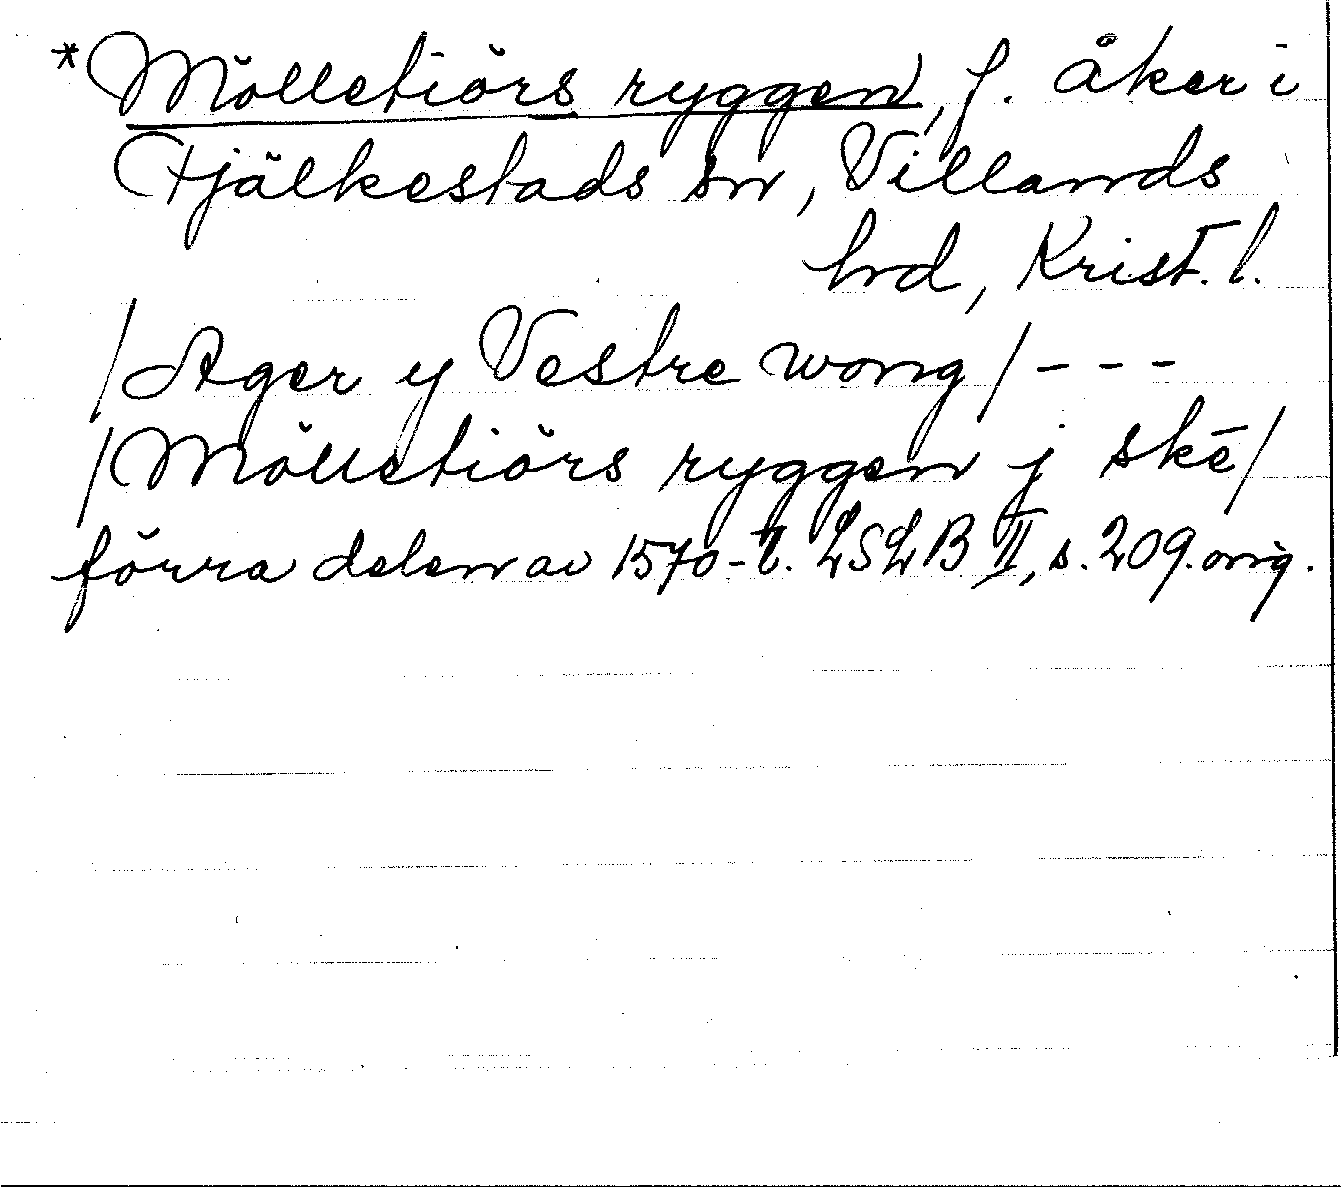 *Mölletiörs ryggen, f. åker i
Fjälkestads sn, Villands
hd, Krist. l.
/Ager y Vestre wong/ - - -
/Mölletiörs ryggen j skē/
förra delen av 1570-t. LSLB II, s. 209. orig.